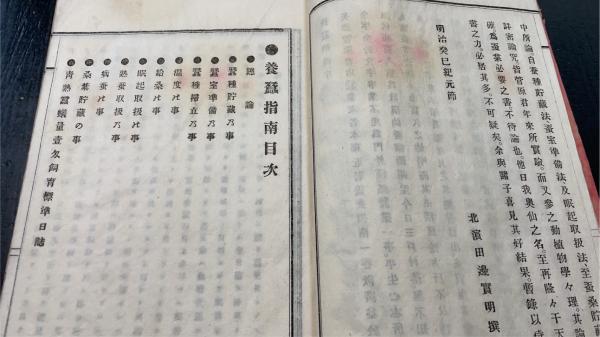 中所論自養蚕貯藏法蚕室準備法及眠起取扱法至蚕桑貯
詳密論究皆菅原君年來所實驗而又參之動植物學々理其論
確為蚕業必要之書不待論也他日我奥仙之名至再隆々干天
書之力必居其多不可疑矣余與諸子喜見其好結果暫錄以
明治癸巳紀元節
北濱田邊實明撰
養蚕指南目次
總論
蚕種貯藏乃事
蚕室準備乃事
蚕種掃立乃事
温度比事
給桑比事
眠起取扱比事
熟蚕取扱乃事
病蚕比事
桑葉貯藏の事
青熟蠶蟻量壹匁飼育標準日誌